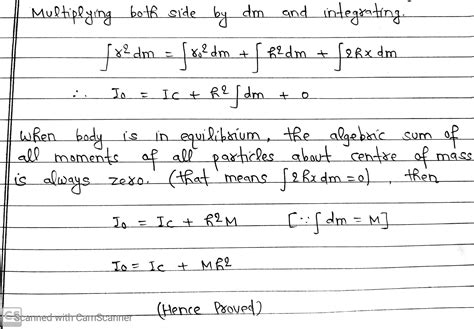 Multiplying both side by dm and integrating.
∫r² dm = ∫r₀² dm + ∫h² dm + ∫2hx dm
∴ I₀ = Ic + h² ∫dm + 0
when body is in equilibrium, the algebric sum of
all moments of all particles about centre of mass
is always zero. (that means ∫2hxdm = 0) , then
I₀ = Ic + h²M [∵ ∫dm = M]
I₀ = Ic + Mh²
(Hence Proved)
CS Scanned with CamScanner